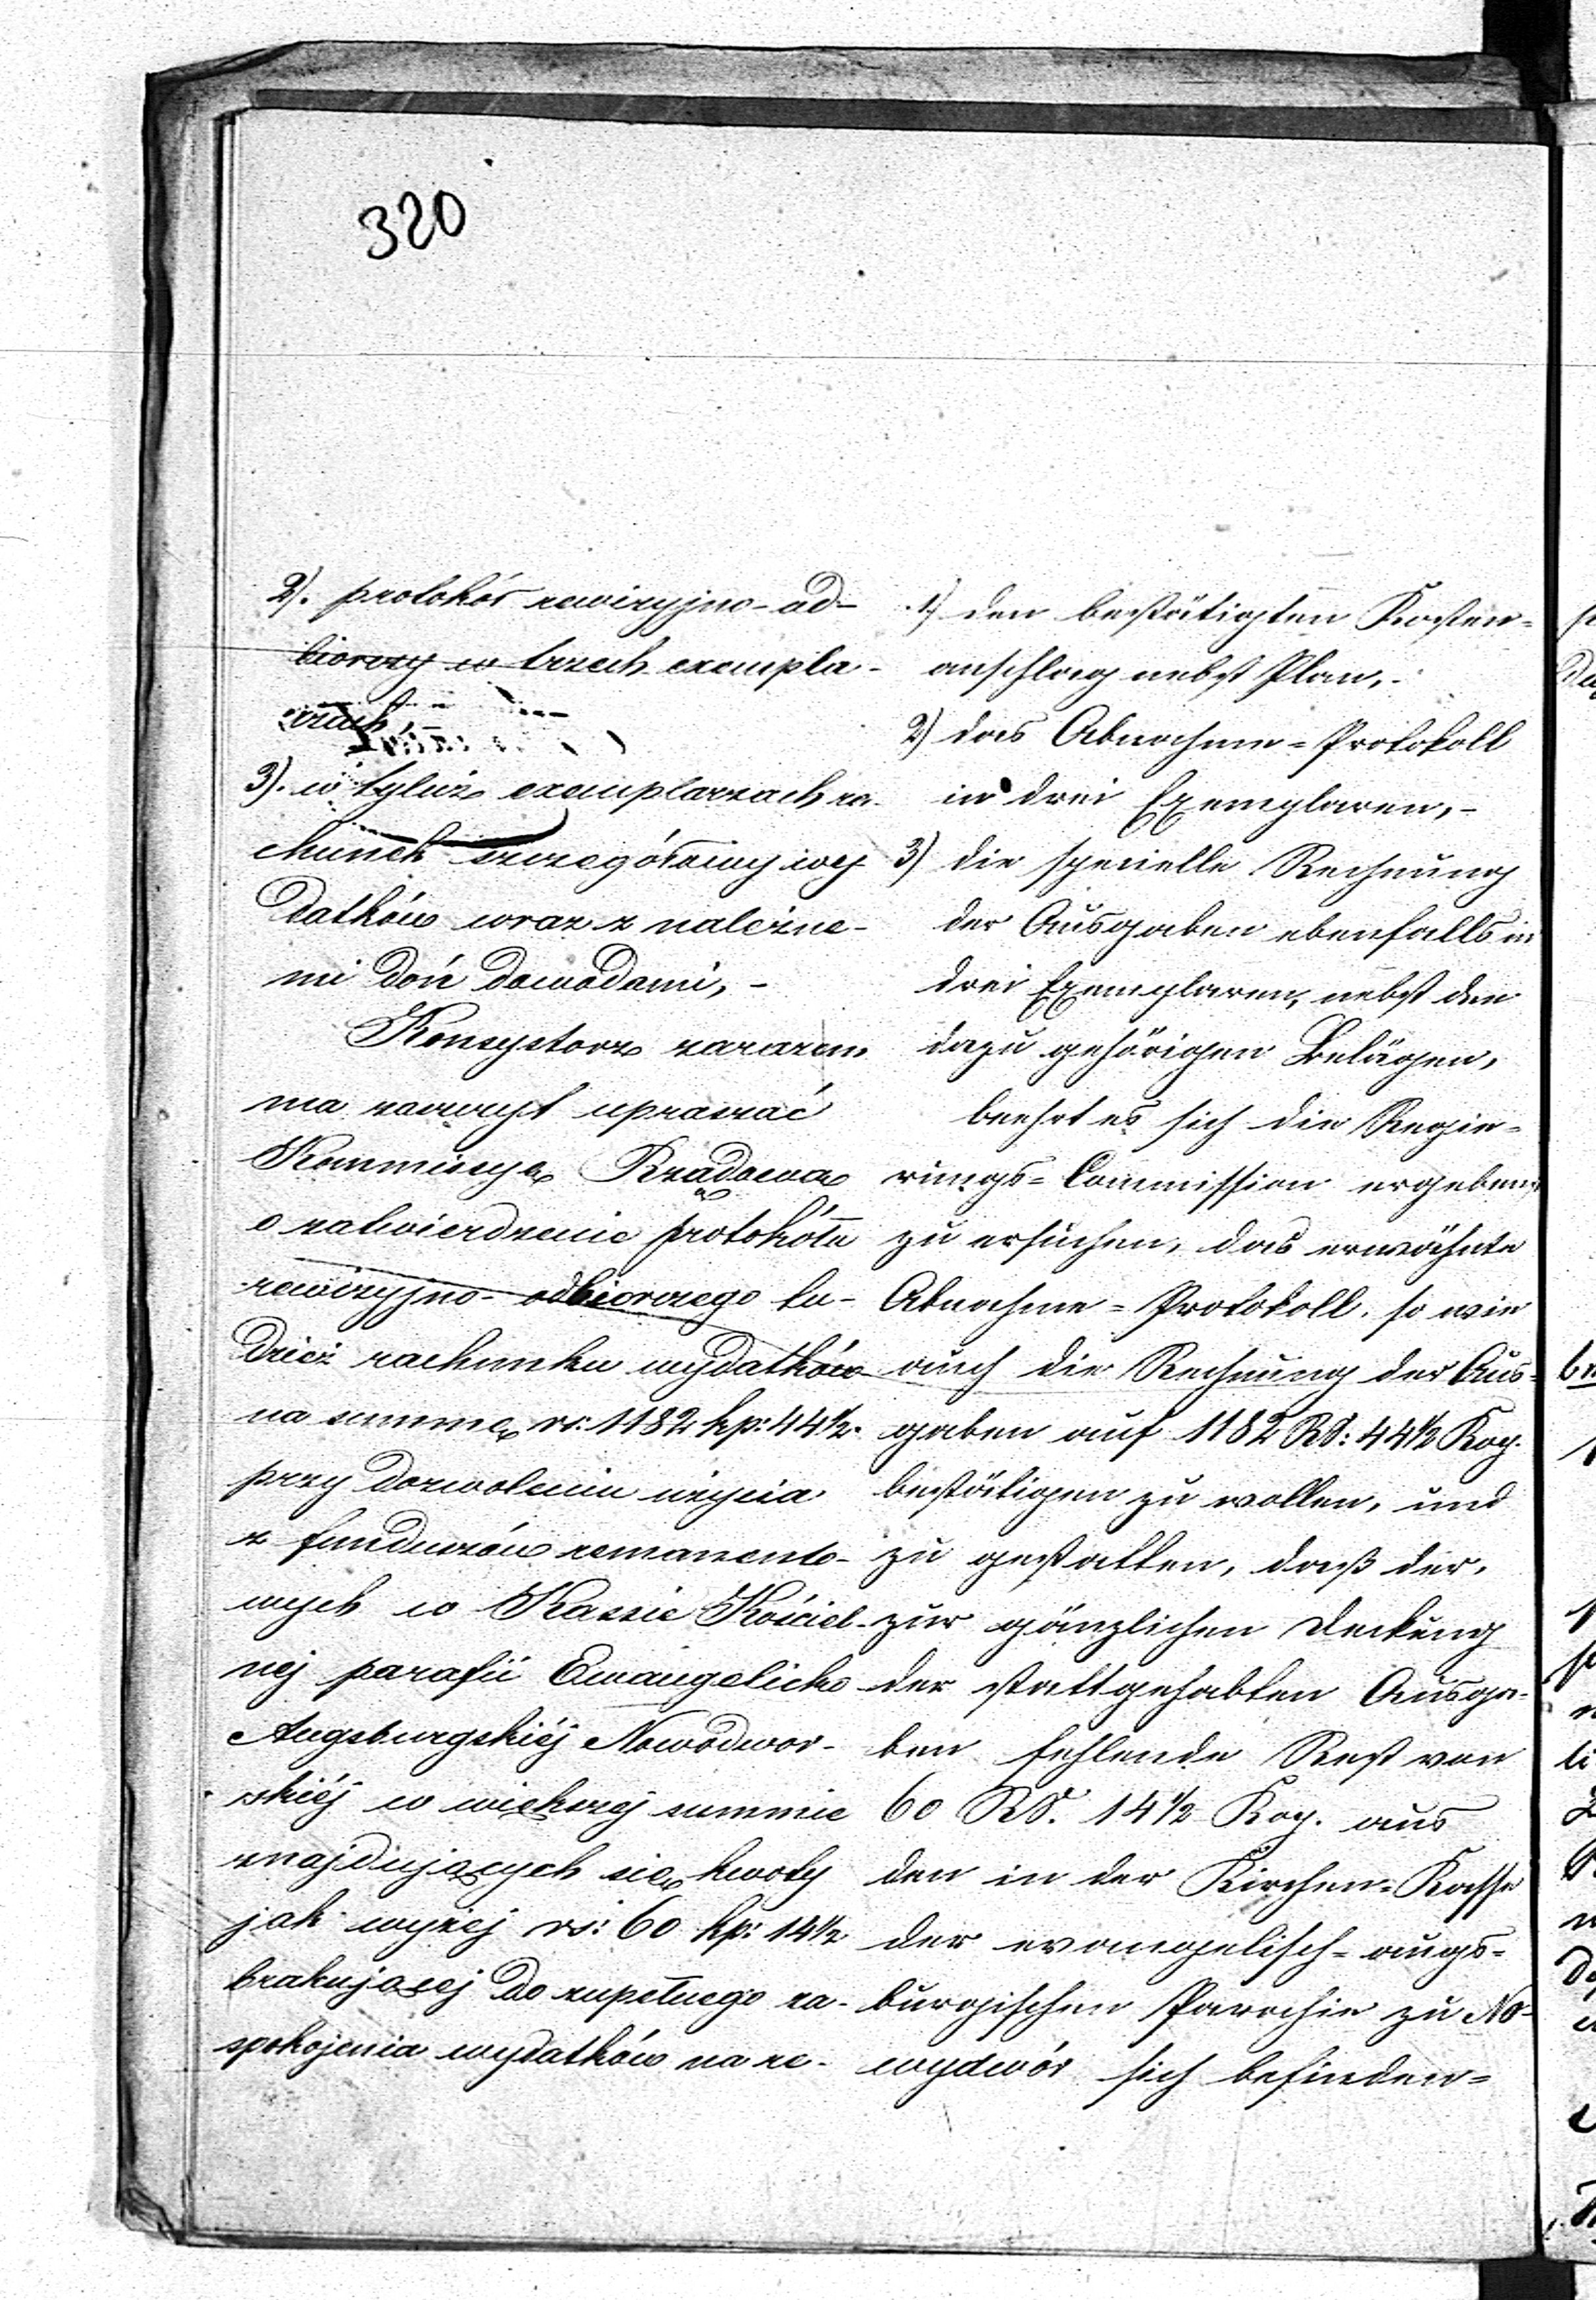 320
2). protokół rewizyjno-od-
biorczy w trzech exempla-
rzach,
3). w tyluż exemplarzach ra-
chunek szczegółowy wy
datków wraz z należne-
mi doń dowodami, -
Konsystorz zarazem
ma zaszczyt upraszać
Kommissyę Rządową
o zatwierdzenie protokółu
rewizyjno-odbiorczego tu-
dzież rachunku wydatków
na summę rs: 1182 kp: 44½.
przy dozwoleniu użycia
z funduszów remanento-
wych w Kassie Kościel-
nej parafii Ewangelicko
Augsburgskiéj Nowodwor-
skiéj w większej summie
znajdujących się, kwoty
jak wyżej rs: 60 kp: 14½
brakującej do zupełnego za-
spokojenia wydatków na re-
1) den bestätigten Kosten=
anschlag nebst Plan, -
2) das Abnahme=Protokoll
in drei Exemplaren, -
3) die specielle Rechnung
der Ausgaben ebenfalls in
drei Exemplaren, nebst den
dazu gehörigen Belägen,
beehrt es sich die Regie=
rungs=Commission ergebenst
zu ersuchen, das erwähnte
Abnahme=Protokoll, so wie
auch die Rechnung der Aus=
gaben auf 1182 RS: 44½ Kop.
bestätigen zu wollen, und
zu gestatten, daß der,
zur gänzlichen Deckung
der stattgehabten Ausga=
ben fehlende Rest von
60 RS. 14½ Kop. aus
den in der Kirchen=Kasse
der evangelisch=augs=
burgischen Parochie zu No-
wydwór sich befinden=